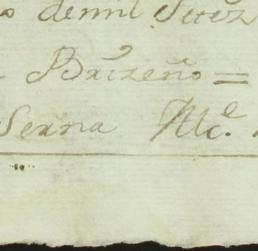 demil
Brizeño =
Serna M.e